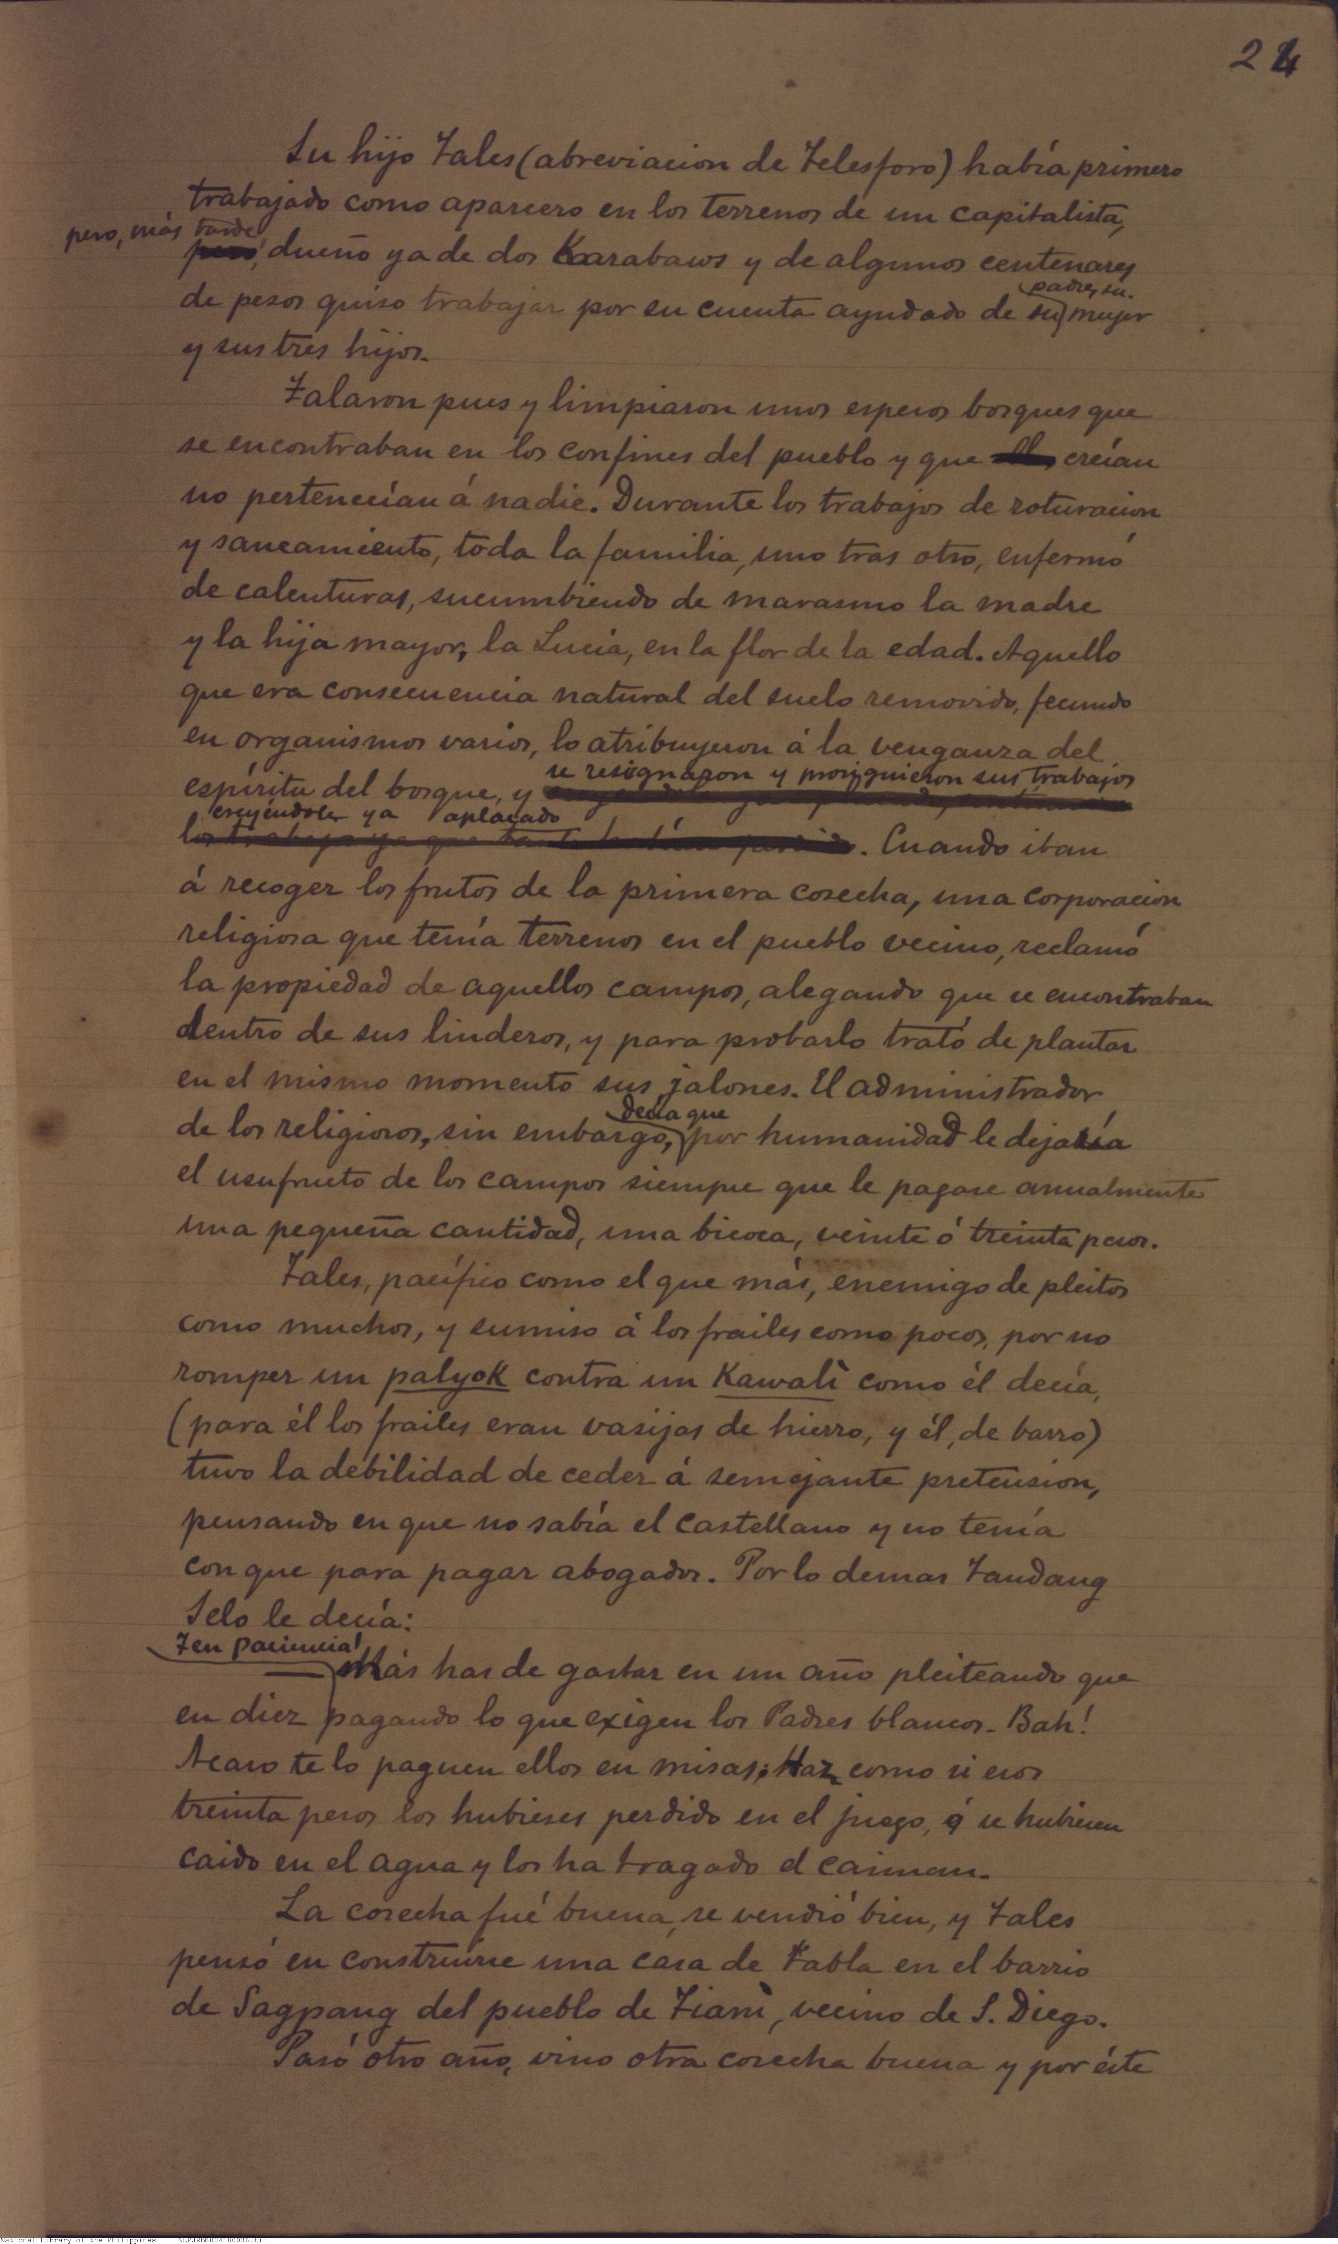 24
Su hijo Tales (abreviacion de Telesforo) había primero
trabajado como aparcero en los terrenos de un capitalista,
pero, más tarde
pero, dueño ya de dos Karabaws y de algunos centenares
padre, su
de pesos quiso trabajar por su cuenta ayudado de su mujer
y sus tres hijos.
Talaron pues y limpiaron unos espesos bosques que
se encontraban en los confines del pueblo y que creían
no pertenecían á nadie. Durante los trabajos de roturacion
y saneamiento, toda la familia, uno tras otro, enfermó
de calenturas, sucumbiendo de marasmo la madre
y la hija mayor, la Lucia, en la flor de la edad. Aquello
que era consecuencia natural del suelo removido, fecundo
en organismos varios, lo atribuyeron á la venganza del
se resignaron y prosiguieron sus trabajos
espíritu del bosque, y
creyéndole ya aplacado
. Cuando iban
á recoger los frutos de la primera cosecha, una corporacion
religiosa que tenía terrenos en el pueblo vecino, reclamó
la propiedad de aquellos campos, alegando que se encontraban
dentro de sus linderos, y para probarlo trató de plantar
en el mismo momento sus jalones. El administrador
decía que
de los religiosos, sin embargo, por humanidad le dejaría
el usufructo de los campos siempre que le pagase anualmente
una pequeña cantidad, una bicoca, veinte ó treinta pesos.
Tales, pacífico como el que más, enemigo de pleitos
como muchos, y sumiso á los frailes como pocos, por no
romper un palyok contra un Kawalì como él decía,
(para él los frailes eran vasijas de hierro, y él, de barro)
tuvo la debilidad de ceder á semejante pretension,
pensando en que no sabía el castellano y no tenía
con que para pagar abogados. Por lo demas Tandang
Selo le decía:
Ten paciencia!
— Más has de gastar en un año pleiteando que
en diez pagando lo que exigen los Padres blancos. Bah!
Acaso te lo paguen ellos en misas; Haz como si esos
treinta pesos los hubieses perdido en el juego, ó se hubiesen
caido en el agua y los ha tragado el caiman.
La cosecha fué buena, se vendió bien, y Tales
pensó en construirse una casa de tabla en el barrio
de Sagpang del pueblo de Tianì, vecino de S. Diego.
Pasó otro año, vino otra cosecha buena y por éste